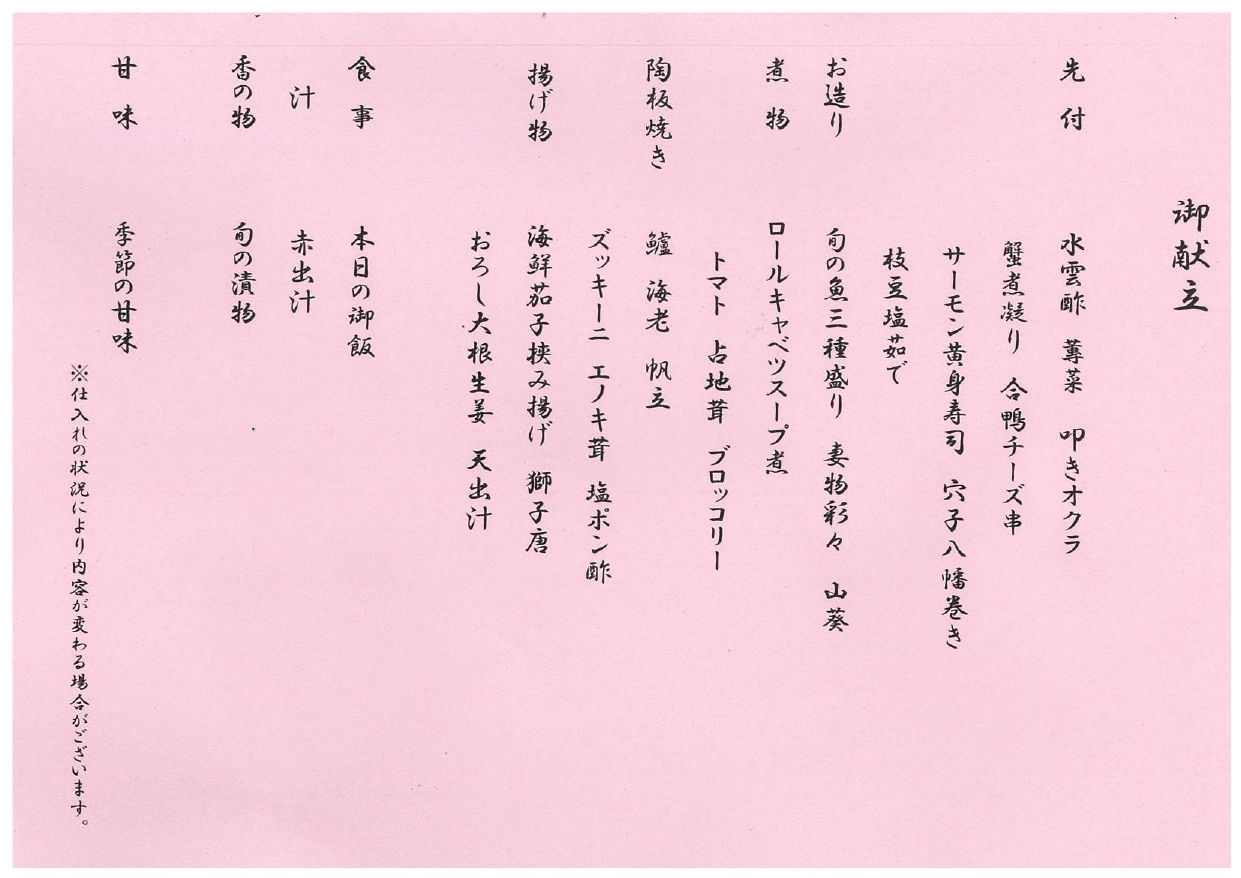 御献立
先付　水雲酢　蓴菜　叩きオクラ
蟹煮凝り　合鴨チーズ串
サーモン黄身寿司　穴子八幡巻き
枝豆塩茹で
お造り　旬の魚三種盛り　妻物彩々　山葵
煮物　ロールキャベツスープ煮
トマト　占地茸　ブロッコリー
陶板焼き　鱸　海老　帆立
ズッキーニ　エノキ茸　塩ポン酢
揚げ物　海鮮茄子挟み揚げ　獅子唐
おろし大根生姜　天出汁
食事　本日の御飯
汁　赤出汁
香の物　旬の漬物
甘味　季節の甘味
※仕入れの状況により内容が変わる場合がございます。